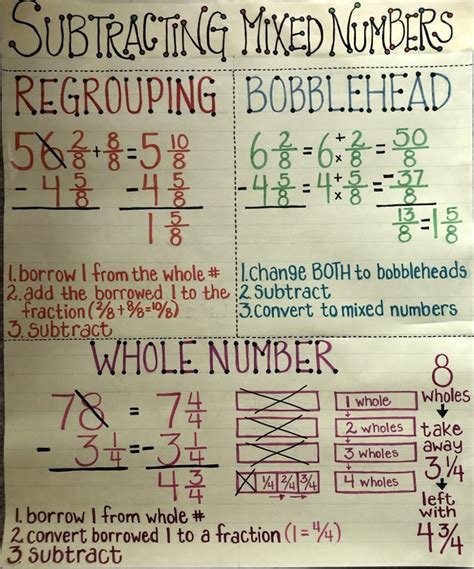 SUBTRACTING MIXED NUMBERS
REGROUPING
5 6 2/8 + 8/8 = 5 10/8
- 4 5/8 - 4 5/8
1 5/8
1. borrow 1 from the whole #
2. add the borrowed 1 to the
fraction (2/8 + 8/8 = 10/8)
3. subtract
BOBBLEHEAD
6 2/8 = 6 + x 2/8 = 50/8
- 4 5/8 = 4 + x 5/8 = - 37/8
13/8 = 1 5/8
1. change BOTH to bobbleheads
2. subtract
3. convert to mixed numbers
WHOLE NUMBER
7 8 = 7 4/4
- 3 1/4 = - 3 1/4
4 3/4
1. borrow 1 from whole #
2. convert borrowed 1 to a fraction (1 = 4/4)
3. subtract
1/4 2/4 3/4
1 whole
2 wholes
3 wholes
4 wholes
8
wholes
take
away
3 1/4
left
with
4 3/4